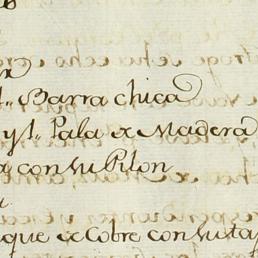 Barra chica
y 1. Pala de Madera
con su Pilon
que de Cobre con su ta